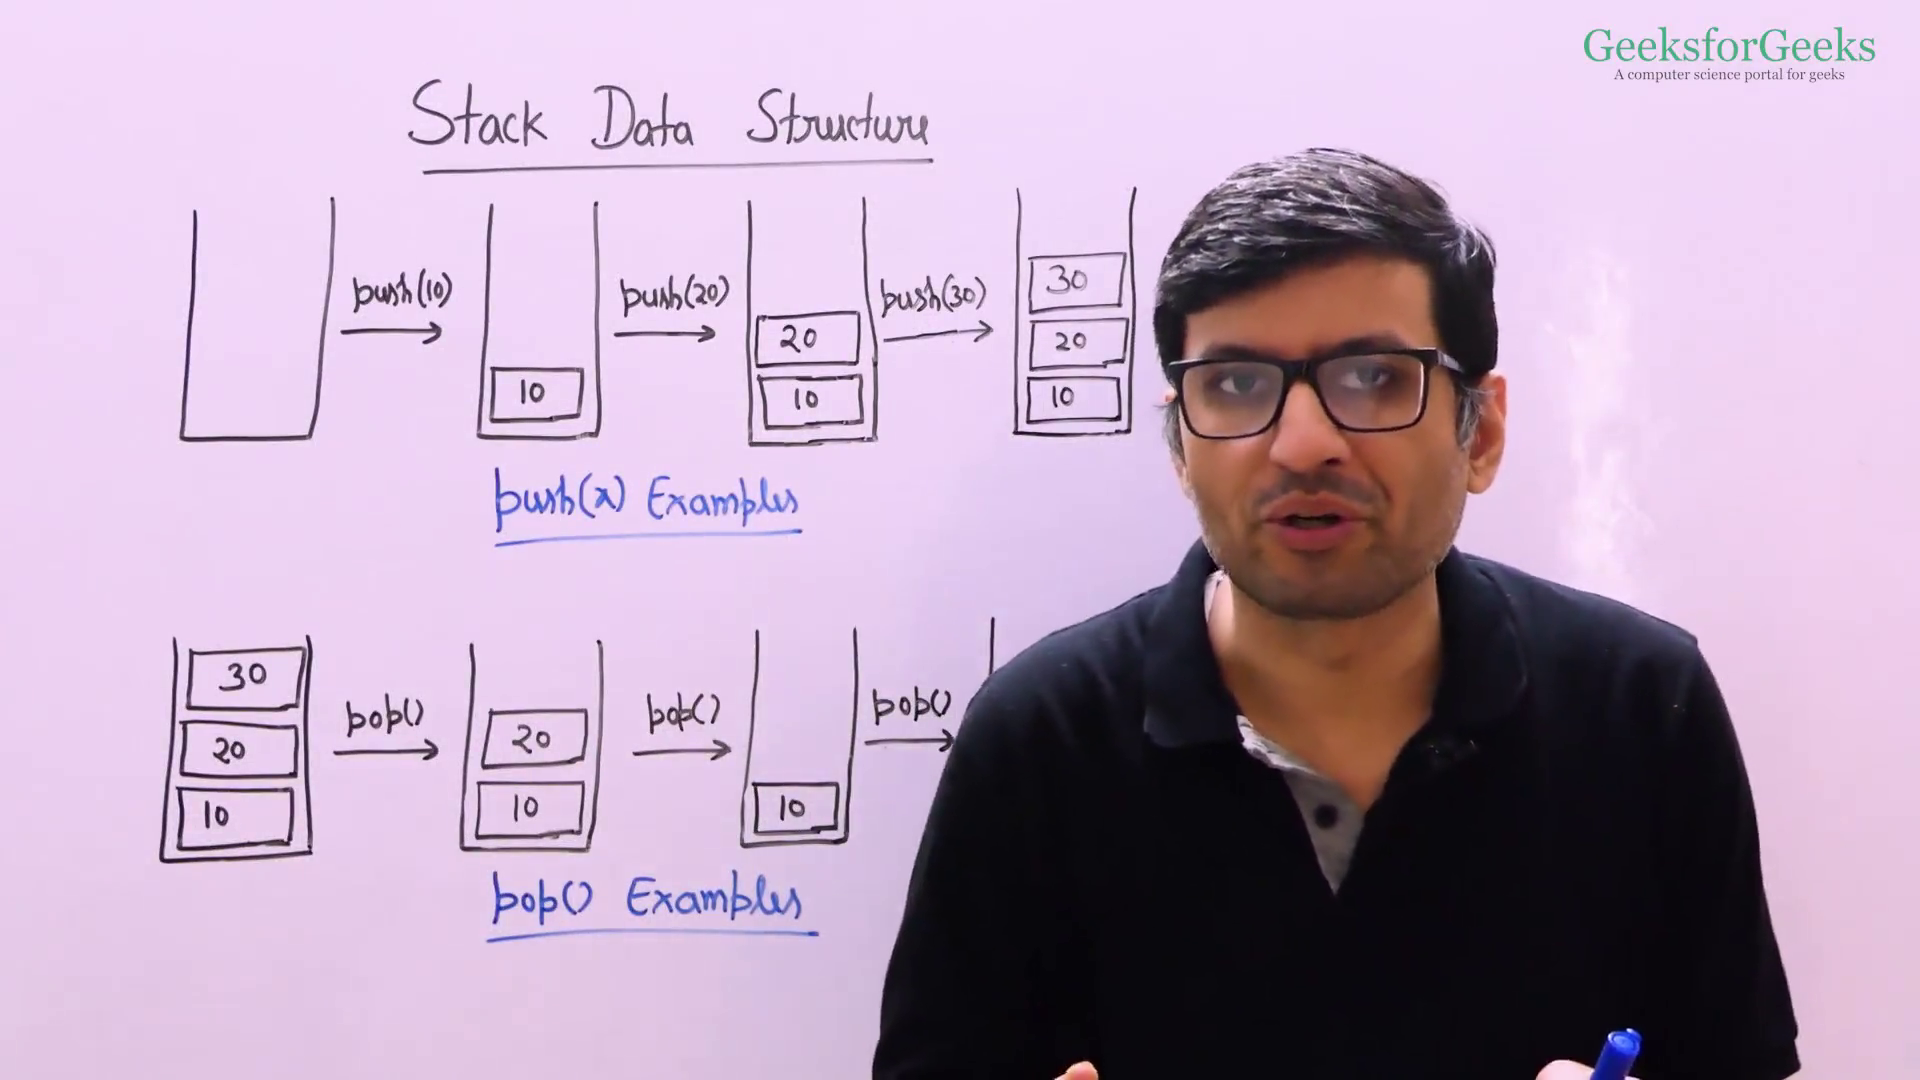 GeeksforGeeks
A computer science portal for geeks
Stack Data Structure
push(10) push(20) push(30)
30
20 20
10 10 10
push(x) Examples
30
pop() pop() pop()
20 20
10 10 10
pop() Examples